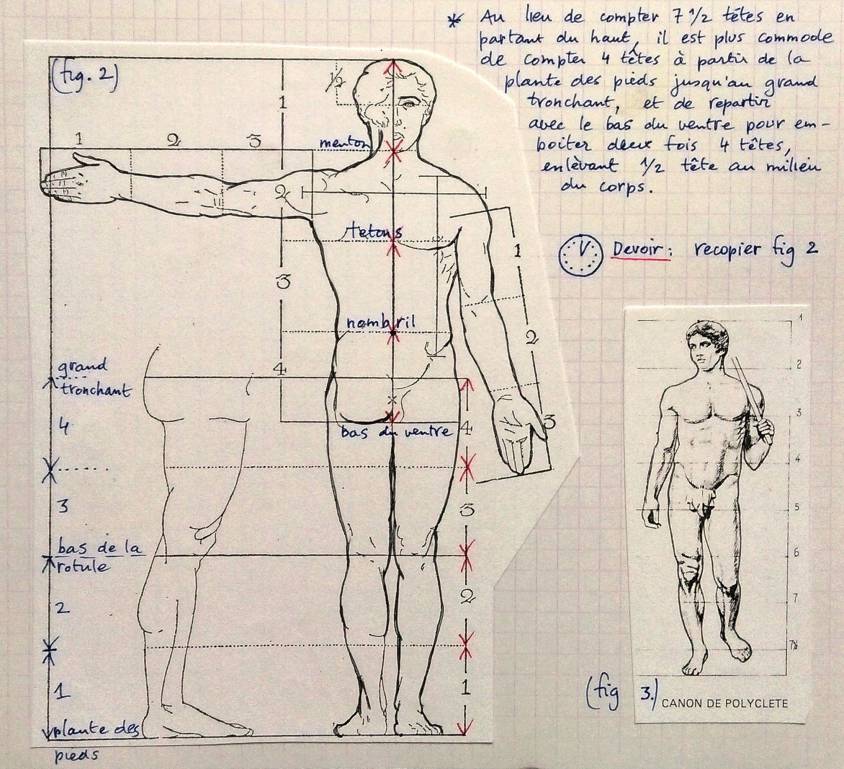 * Au lieu de compter 7 1/2 têtes en
partant du haut, il est plus commode
de compter 4 têtes à partir de la
plante des pieds jusqu'au grand
tronchant, et de repartir
avec le bas du ventre pour em-
boiter deux fois 4 têtes,
enlèvant 1/2 tête au milieu
du corps.
Devoir: recopier fig 2
(fig. 2)
1/2
1
1 2 3
menton
2
tetons
3
nombril
4
bas du ventre
1
2
3
grand
tronchant
4
3
bas de la
rotule
2
1
plante des
pieds
4
3
2
1
1
2
3
4
5
6
7
7½
(fig 3.)
CANON DE POLYCLETE